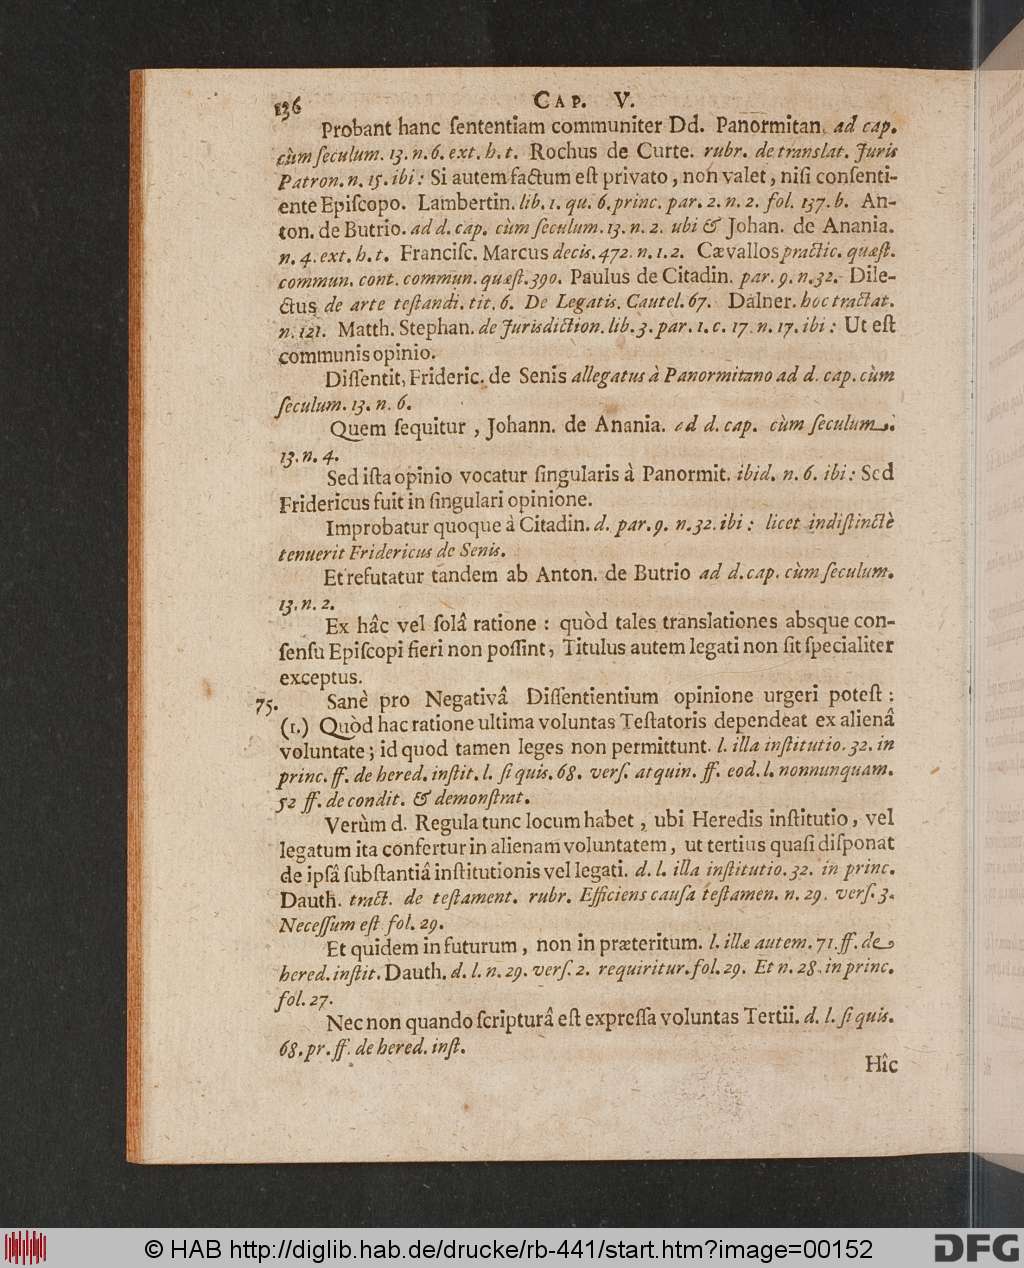 136
CAP. V.
Probant hanc ſententiam communiter Dd. Panormitan. ad cap.
cùm ſeculum. 13. n. 6. ext. h. t. Rochus de Curte. rubr. de translat. Juris
Patron. n. 15. ibi: Si autem factum eſt privato, non valet, niſi conſenti-
ente Epiſcopo. Lambertin. lib. 1. qu. 6. princ. par. 2. n. 2. fol. 137. b. An-
ton. de Butrio. ad d. cap. cùm ſeculum. 13. n. 2. ubi & Johan. de Anania.
n. 4. ext. h. t. Franciſc. Marcus decis. 472. n. 1. 2. Cævallos practic. quæſt.
commun. cont. commun. quæſt. 390. Paulus de Citadin. par. 9. n. 32. Dile-
ctus de arte teſtandi. tit. 6. De Legatis. Cautel. 67. Dalner. hoc tractat.
n. 121. Matth. Stephan. de Jurisdiction. lib. 3. par. 1. c. 17. n. 17. ibi: Ut eſt
communis opinio.
Diſſentit, Frideric. de Senis allegatus à Panormitano ad d. cap. cùm
ſeculum. 13. n. 6.
Quem ſequitur, Johann. de Anania. ad d. cap. cùm ſeculum.
13. n. 4.
Sed iſta opinio vocatur ſingularis à Panormit. ibid. n. 6. ibi: Sed
Fridericus fuit in ſingulari opinione.
Improbatur quoque à Citadin. d. par. 9. n. 32. ibi: licet indiſtinctè
tenuerit Fridericus de Senis.
Et refutatur tandem ab Anton. de Butrio ad d. cap. cùm ſeculum.
13. n. 2.
Ex hâc vel ſolâ ratione: quòd tales translationes absque con-
ſenſu Epiſcopi fieri non poſſint, Titulus autem legati non ſit ſpecialiter
exceptus.
75. Sanè pro Negativâ Diſſentientium opinione urgeri poteſt:
(1.) Quòd hac ratione ultima voluntas Teſtatoris dependeat ex alienâ
voluntate; id quod tamen leges non permittunt. l. illa inſtitutio. 32. in
princ. ff. de hered. inſtit. l. ſi quis. 68. verſ. atquin. ff. eod. l. nonnunquam.
52 ff. de condit. & demonſtrat.
Verùm d. Regula tunc locum habet, ubi Heredis inſtitutio, vel
legatum ita confertur in alienam voluntatem, ut tertius quaſi diſponat
de ipſâ ſubſtantiâ inſtitutionis vel legati. d. l. illa inſtitutio. 32. in princ.
Dauth. tract. de teſtament. rubr. Efficiens cauſa teſtamen. n. 29. verſ. 3.
Neceſſum eſt fol. 29.
Et quidem in futurum, non in præteritum. l. illæ autem. 71. ff. de
hered. inſtit. Dauth. d. l. n. 29. verſ. 2. requiritur. fol. 29. Et n. 28. in princ.
fol. 27.
Nec non quando ſcripturâ eſt expreſſa voluntas Tertii. d. l. ſi quis.
68. pr. ff. de hered. inſt.
Hîc
© HAB http://diglib.hab.de/drucke/rb-441/start.htm?image=00152
DFG